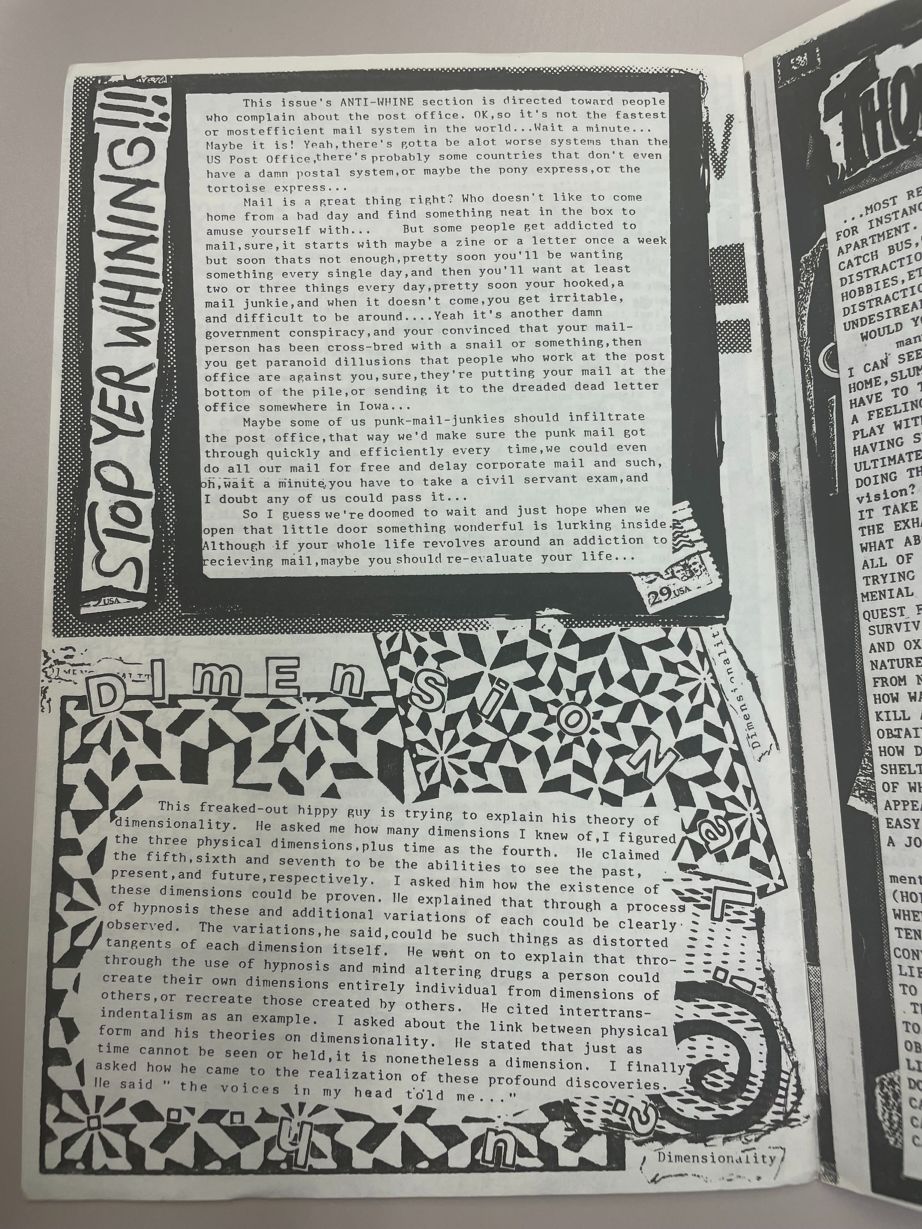 STOP YER WHINING!!!
This issue's ANTI-WHINE section is directed toward people
who complain about the post office. OK,so it's not the fastest
or mostefficient mail system in the world...Wait a minute...
Maybe it is! Yeah,there's gotta be alot worse systems than the
US Post Office,there's probably some countries that don't even
have a damn postal system,or maybe the pony express,or the
tortoise express...
Mail is a great thing right? Who doesn't like to come
home from a bad day and find something neat in the box to
amuse yourself with... But some people get addicted to
mail,sure,it starts with maybe a zine or a letter once a week
but soon thats not enough,pretty soon you'll be wanting
something every single day,and then you'll want at least
two or three things every day,pretty soon your hooked,a
mail junkie,and when it doesn't come,you get irritable,
and difficult to be around....Yeah it's another damn
government conspiracy,and your convinced that your mail-
person has been cross-bred with a snail or something,then
you get paranoid dillusions that people who work at the post
office are against you,sure,they're putting your mail at the
bottom of the pile,or sending it to the dreaded dead letter
office somewhere in Iowa...
Maybe some of us punk-mail-junkies should infiltrate
the post office,that way we'd make sure the punk mail got
through quickly and efficiently every time,we could even
do all our mail for free and delay corporate mail and such,
oh,wait a minute,you have to take a civil servant exam,and
I doubt any of us could pass it...
So I guess we're doomed to wait and just hope when we
open that little door something wonderful is lurking inside.
Although if your whole life revolves around an addiction to
recieving mail,maybe you should re-evaluate your life...
USA
29 USA
DImEnSiONaLi
Dimensionality
This freaked-out hippy guy is trying to explain his theory of
dimensionality. He asked me how many dimensions I knew of,I figured
the three physical dimensions,plus time as the fourth. He claimed
the fifth,sixth and seventh to be the abilities to see the past,
present,and future,respectively. I asked him how the existence of
these dimensions could be proven. He explained that through a process
of hypnosis these and additional variations of each could be clearly
observed. The variations,he said,could be such things as distorted
tangents of each dimension itself. He went on to explain that thro-
through the use of hypnosis and mind altering drugs a person could
create their own dimensions entirely individual from dimensions of
others,or recreate those created by others. He cited intertrans-
indentalism as an example. I asked about the link between physical
form and his theories on dimensionality. He stated that just as
time cannot be seen or held,it is nonetheless a dimension. I finally
asked how he came to the realization of these profound discoveries.
He said " the voices in my head told me..."
Dimensionality
...MOST
FOR
APARTMENT.
CATCH BUS,
HOBBIES,
WOULD
I CAN SEE
HOME,
HAVE TO
A FEELING
PLAY
HAVING
ULTIMATE
DOING
vision?
IT TAKE
THE
WHAT
ALL OF
TRYING
MENIAL
QUEST
AND
NATURE
FROM
HOW
KILL
HOW
OF
EASY
A